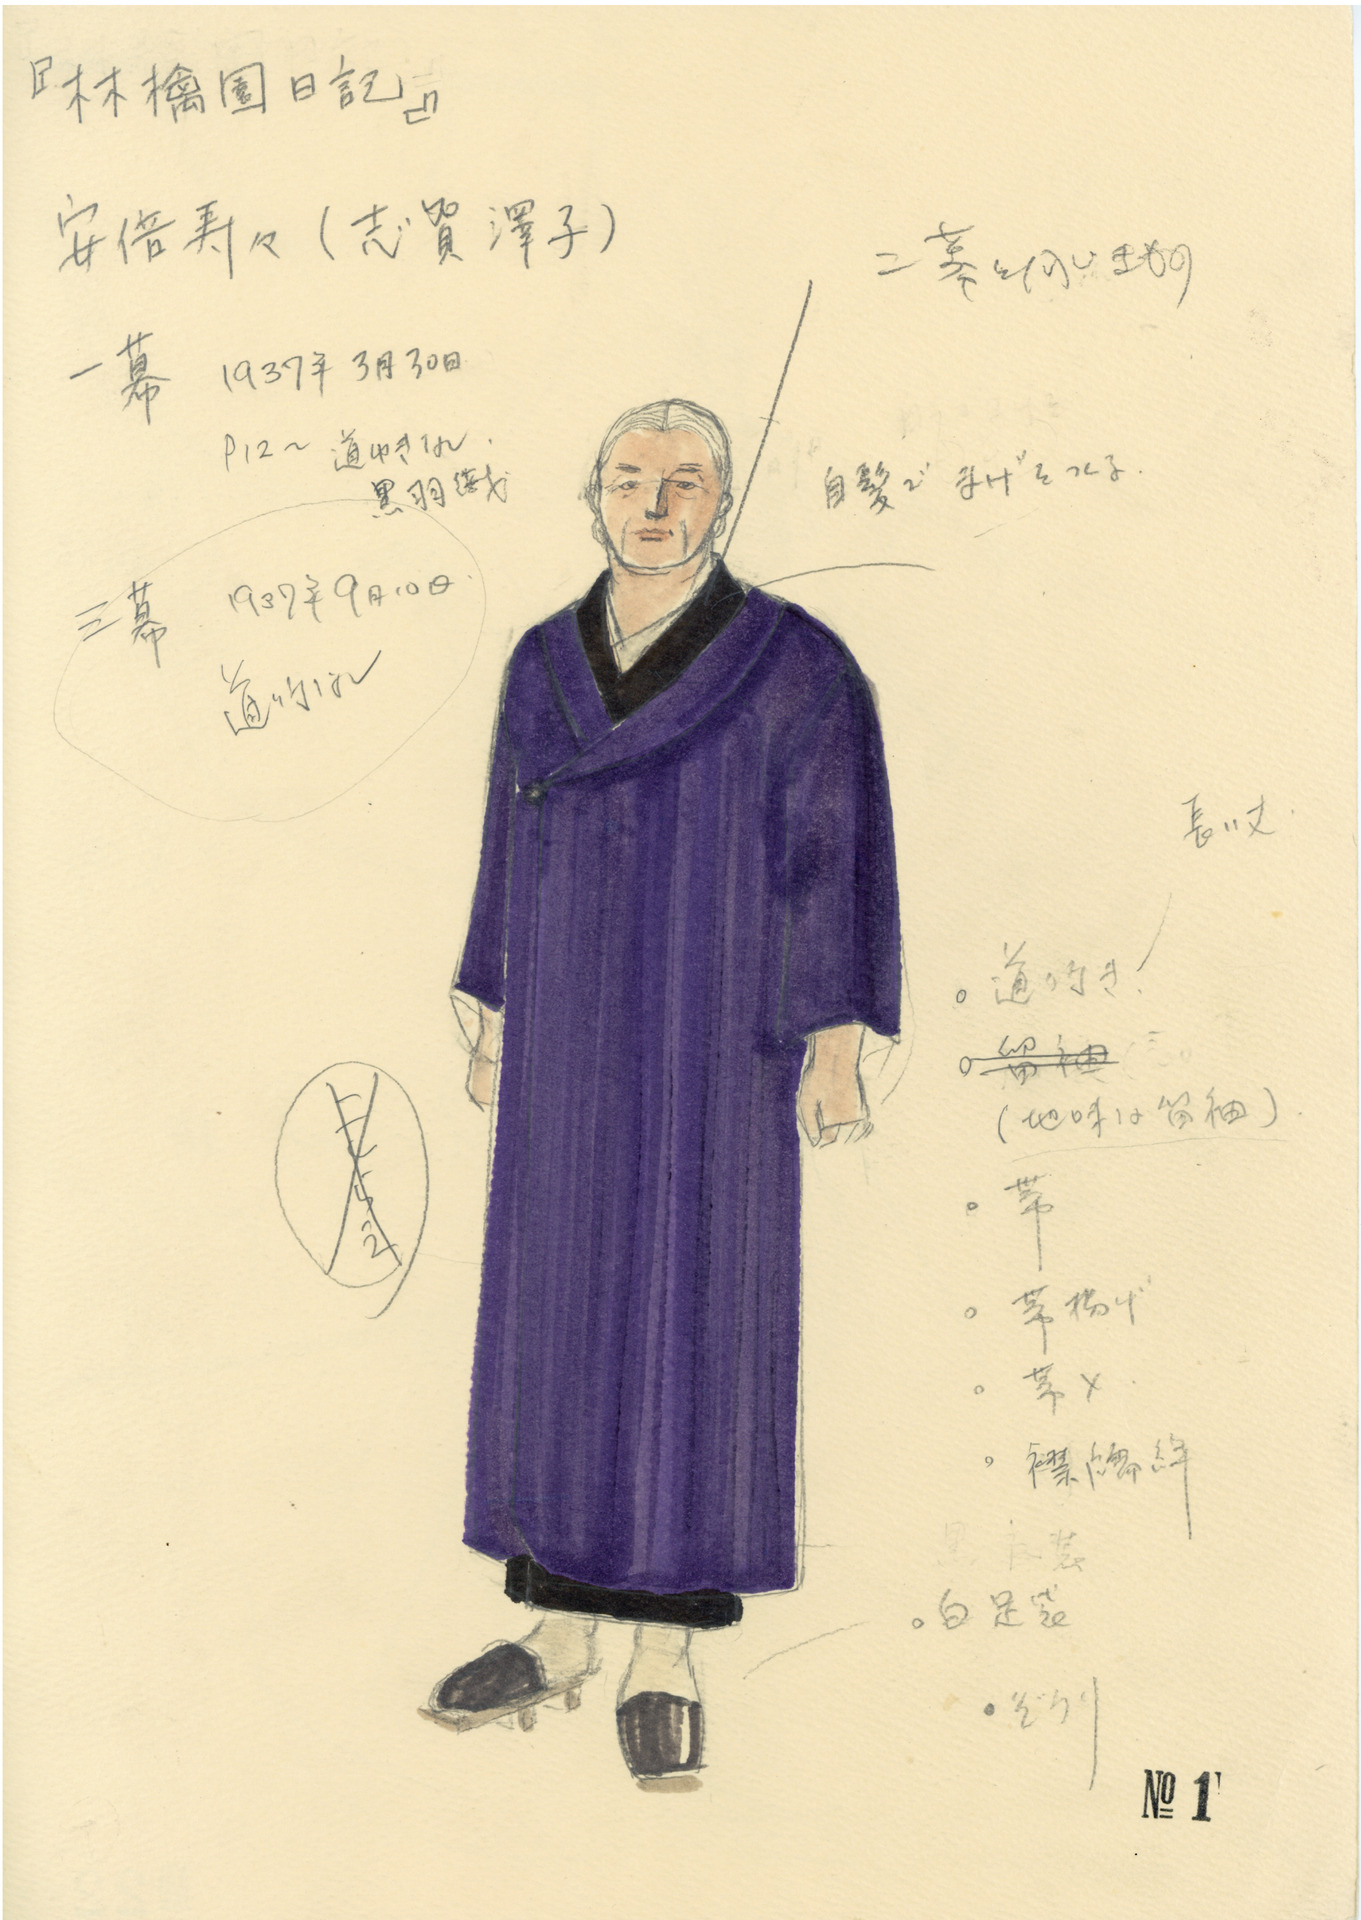 『林檎園日記』
安倍寿々(志賀澤子)
二幕と同じ着物
一幕 1937年3月30日
P12〜 道ゆきなし.
黒羽織
白髪でまげをつくる.
三幕 1937年9月10日.
道行なし
長い丈.
。道行き
。留袖
(地味な留袖).
。帯
。帯揚げ
。帯〆.
。襟
。白足袋
・ぞうり
№ 1